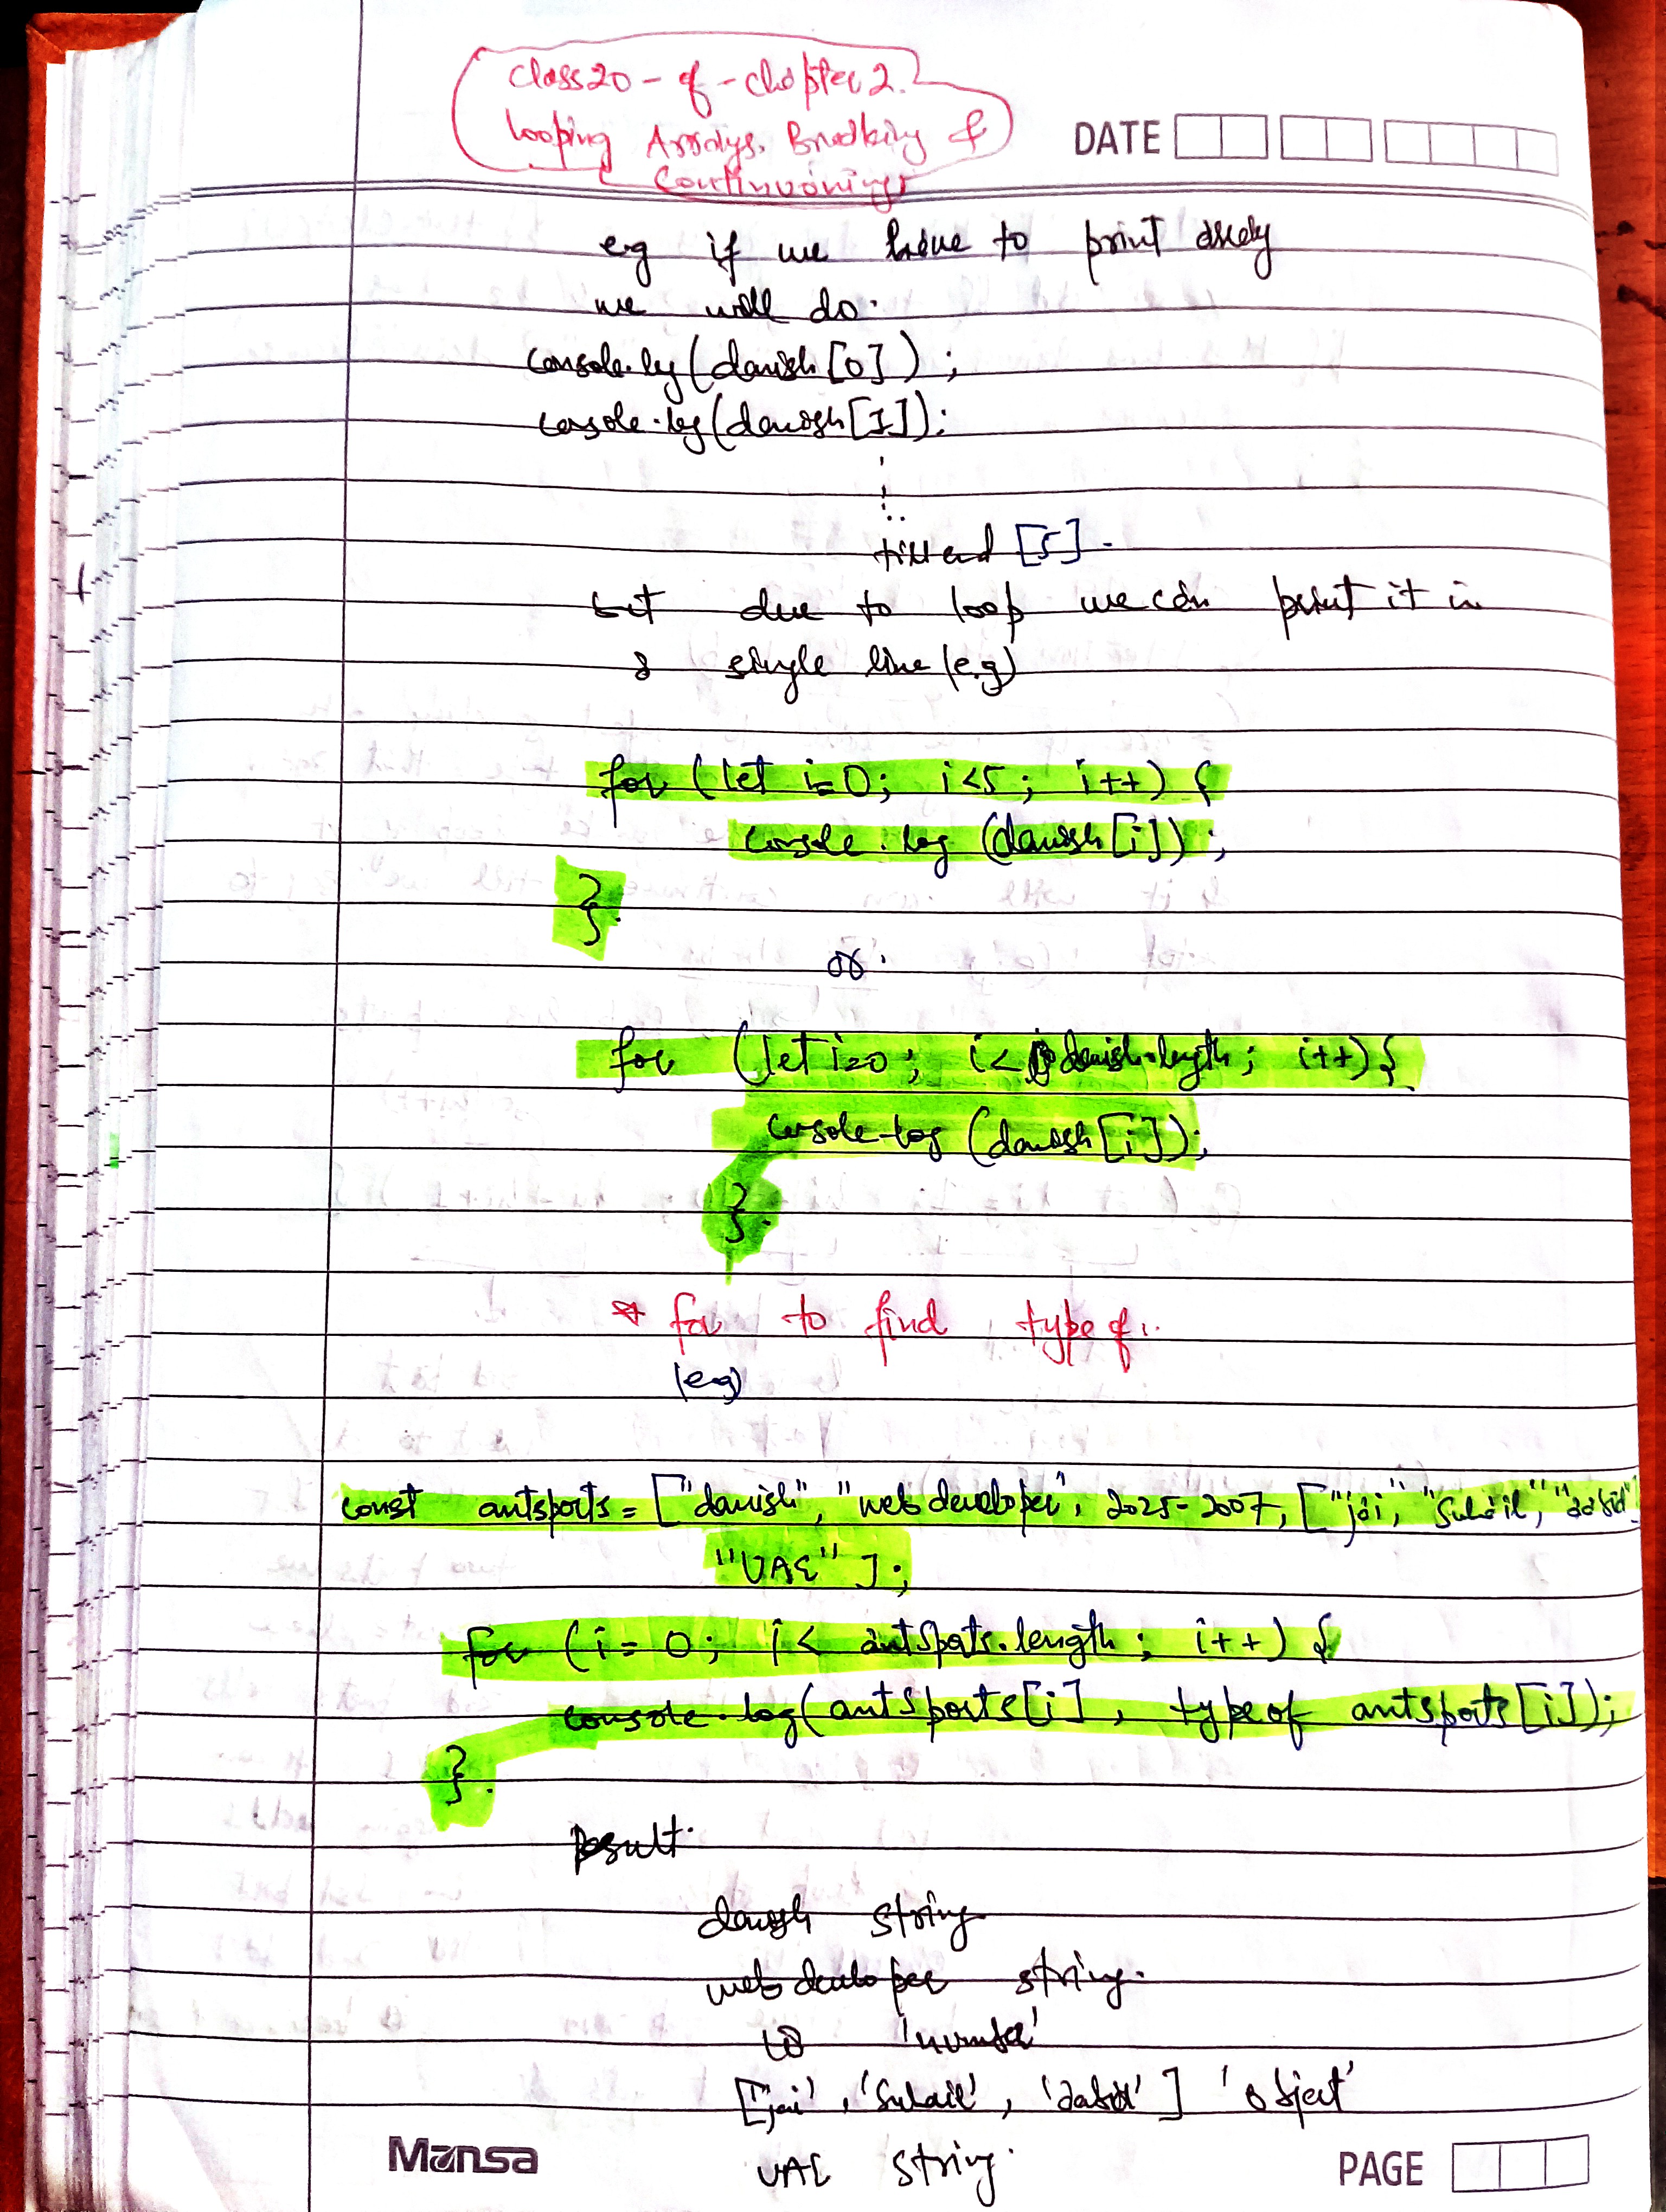 class 20 - of - chapter 2.
looping Arrays, Breaking &
Continuoning
DATE
eg if we have to print
we will do.
console.log(danish[0]);
console.log(danish[1]);
till end [5].
but due to loop we can print it in
a single line (e.g)
for (let i=0; i<5; i++) {
console.log (danish[i]);
}.
or.
for (let i=0; i< danish.length; i++) {
console.log (danish[i]);
}.
* for to find typeof..
(eg)
const antsports = ["danish", "web developer", 2025-2007, ["jai", "Suhail",
"UAE"];
for (i = 0; i < antsports.length; i++) {
console.log(antsports[i], typeof antsports[i]);
}.
Result.
danish string
web developer string.
18 'number'
['jai', 'Suhail', ] 'object'
UAE string.
Mansa
PAGE